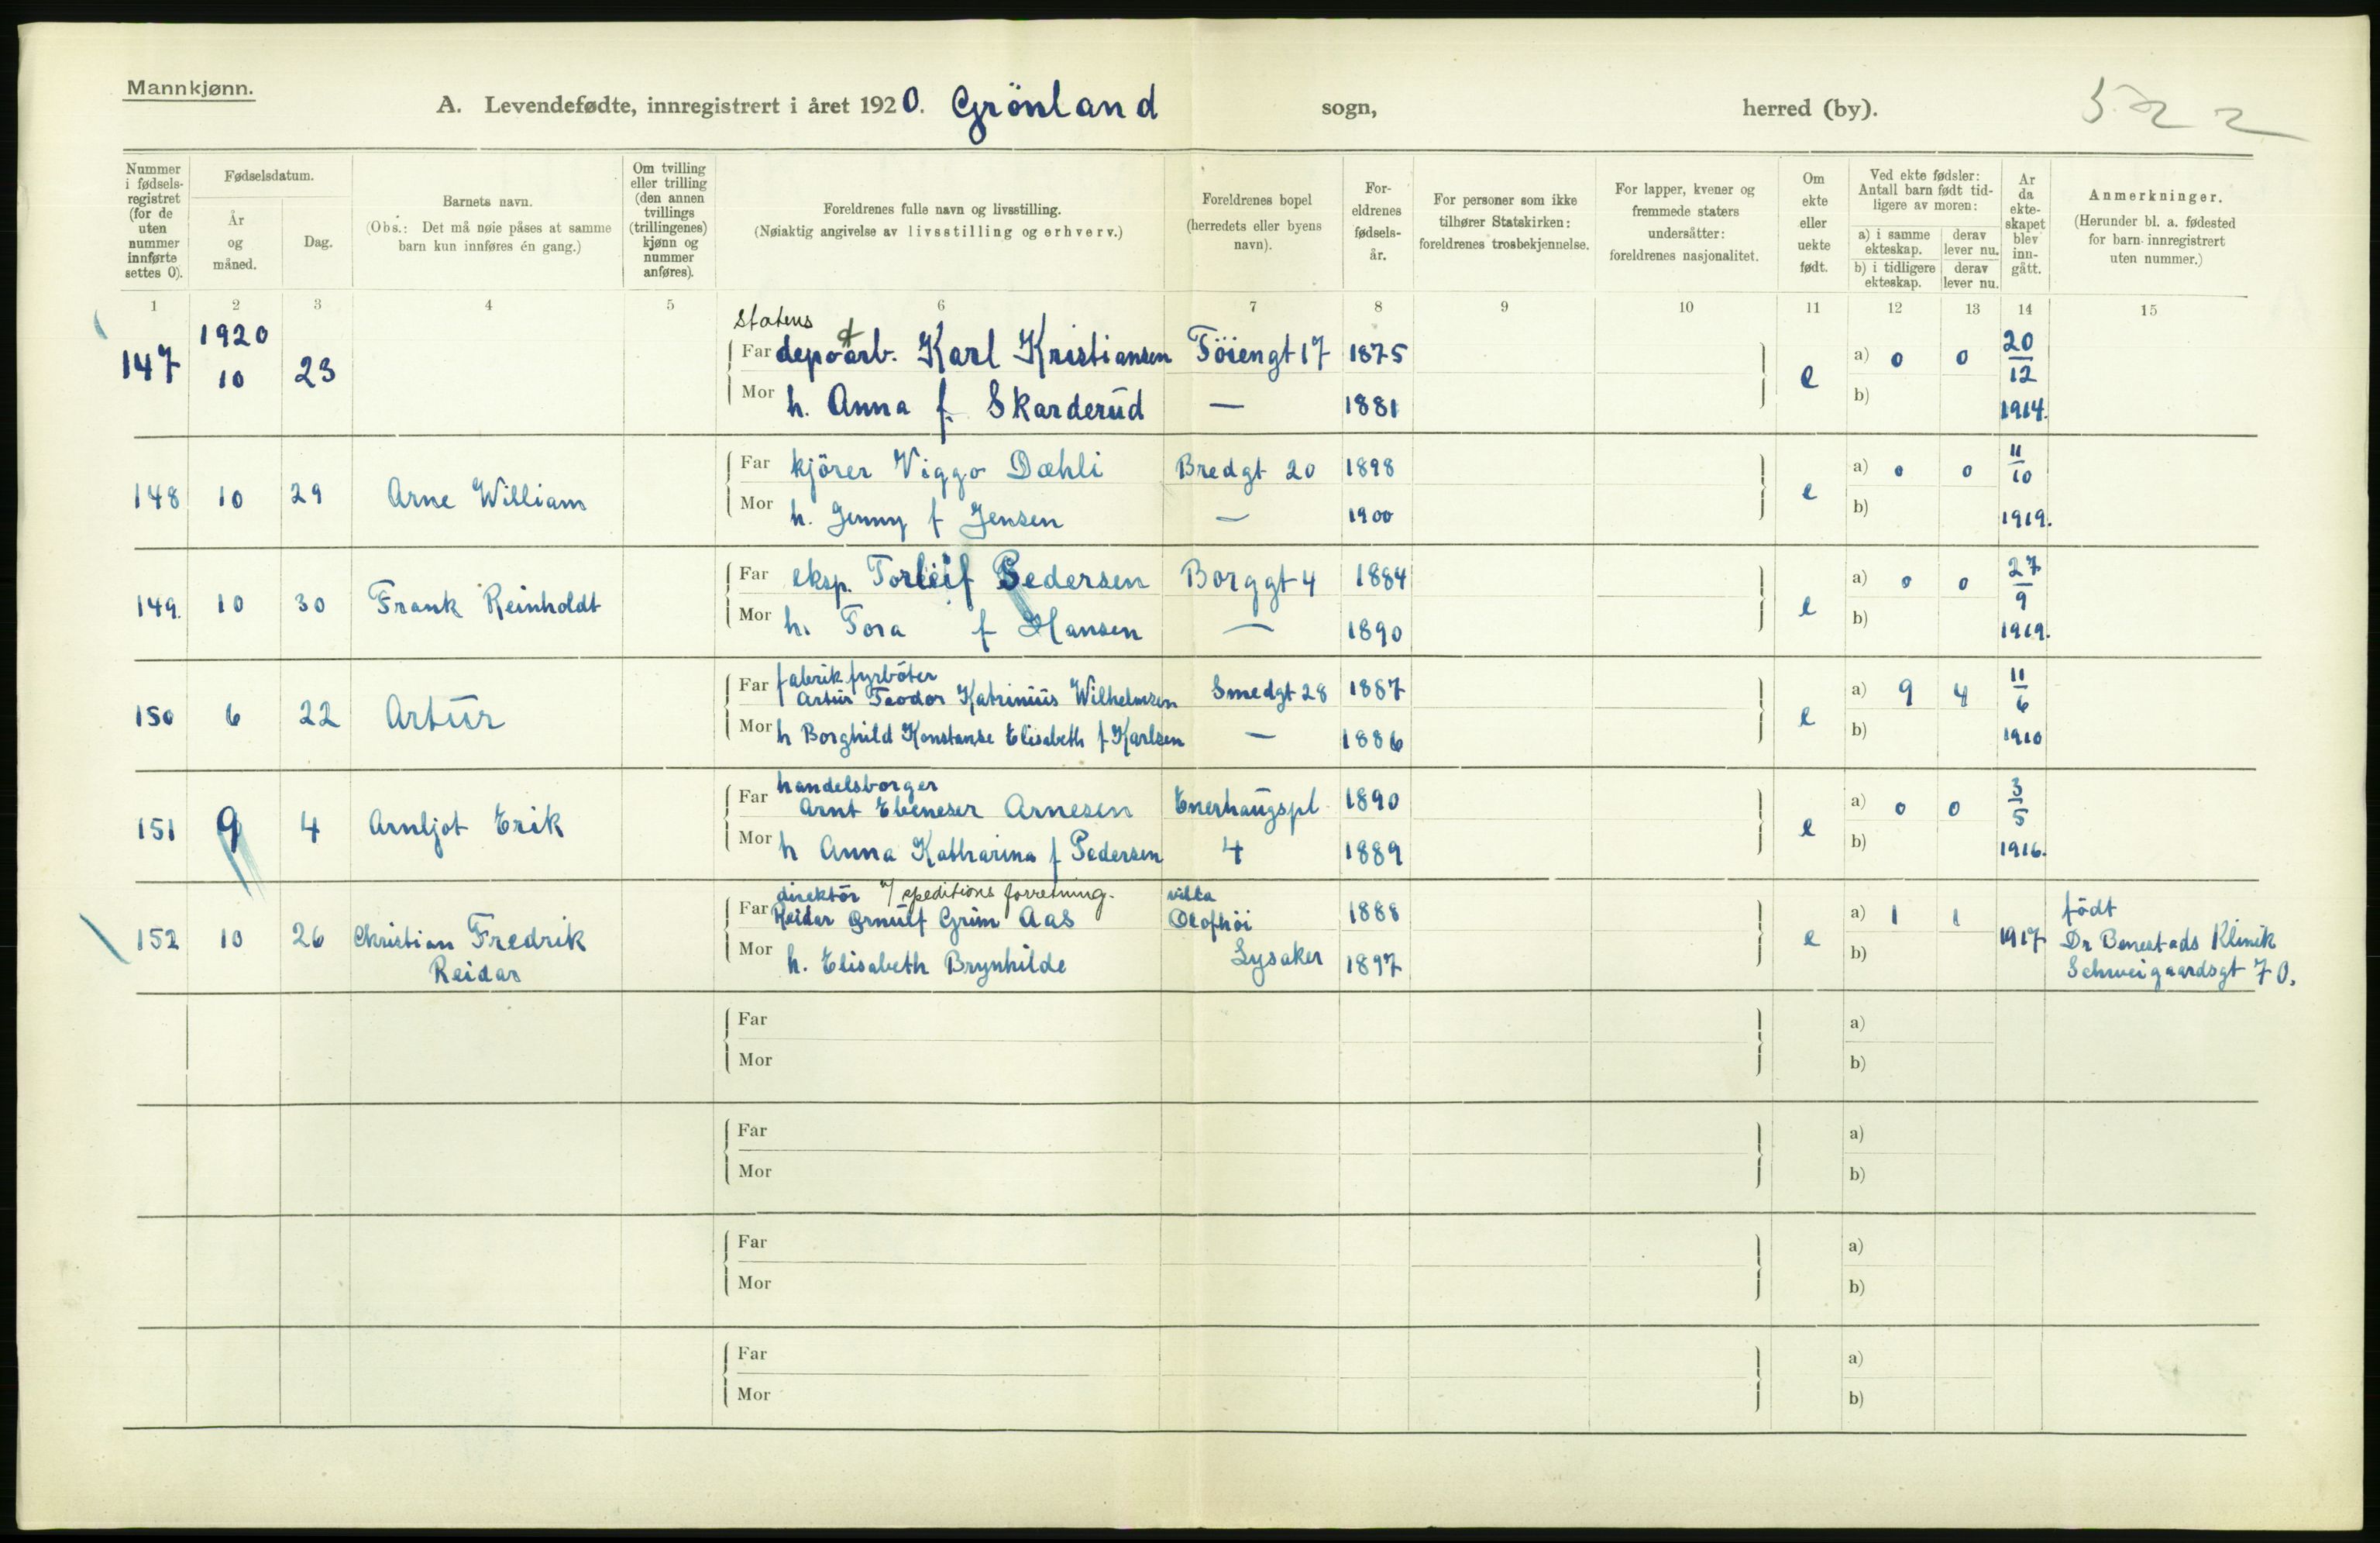 Mannkjønn.
A. Levendefødte, innregistrert i året 1920. Grönland sogn, herred (by). 522
Nummer i fødsels-registret (for de uten nummer innførte settes 0).
Fødselsdatum.
År og måned.
Dag.
Barnets navn.
(Obs.: Det må nøie påses at samme barn kun innføres én gang.)
Om tvilling eller trilling (den annen tvillings (trillingenes) kjønn og nummer anføres).
Foreldrenes fulle navn og livsstilling.
(Nøiaktig angivelse av livsstilling og erhverv.)
Foreldrenes bopel (herredets eller byens navn).
For-eldrenes fødsels-år.
For personer som ikke tilhører Statskirken: foreldrenes trosbekjennelse.
For lapper, kvener og fremmede staters undersåtter: foreldrenes nasjonalitet.
Om ekte eller uekte født.
Ved ekte fødsler: Antall barn født tid-ligere av moren:
a) i samme ekteskap. derav lever nu.
b) i tidligere ekteskap. derav lever nu.
År da ekte-skapet blev inn-gått.
Anmerkninger.
(Herunder bl. a. fødested for barn innregistrert uten nummer.)
1 2 3 4 5 6 7 8 9 10 11 12 13 14 15
147 1920 10 23 Far statens depotarb. Karl Kristiansen Töiengt 17 1875 e a) 0 0 20/12 1914.
Mor h. Anna f. Skarderud — 1881 b)
148 10 29 Arne William Far kjörer Viggo Dæhli Bredgt 20 1898 e a) 0 0 11/10 1919.
Mor h. Jenny f Jensen — 1900 b)
149. 10 30 Frank Reinholdt Far eksp. Torleif Pedersen Borggt 4 1884 e a) 0 0 27/9 1919.
Mor h. Tora f Hansen — 1890 b)
150 6 22 Artur Far fabrikfyrböter
Artur Teodor Katrinius Wilhelmsen Smedgt 28 1887 e a) 9 4 11/6 1910
Mor h Borghild Konstanse Elisabeth f Karlsen — 1886 b)
151 9 4 Arnljot Erik Far handelsborger
Arnt Ebeneser Arnesen Enerhaugspl 1890 e a) 0 0 3/5 1916.
Mor h Anna Katharina f Pedersen 4 1889 b)
152 10 26 Christian Fredrik Reidar Far direktör v/ speditions forretning.
Reidar Ørnulf Grim Aas villa Olofhöi 1888 e a) 1 1 1917 født
Mor h. Elisabeth Brynhilde Lysaker 1897 b) Dr Benestads Klinik
Schweigaardsgt 70.
Far a)
Mor b)
Far a)
Mor b)
Far a)
Mor b)
Far a)
Mor b)